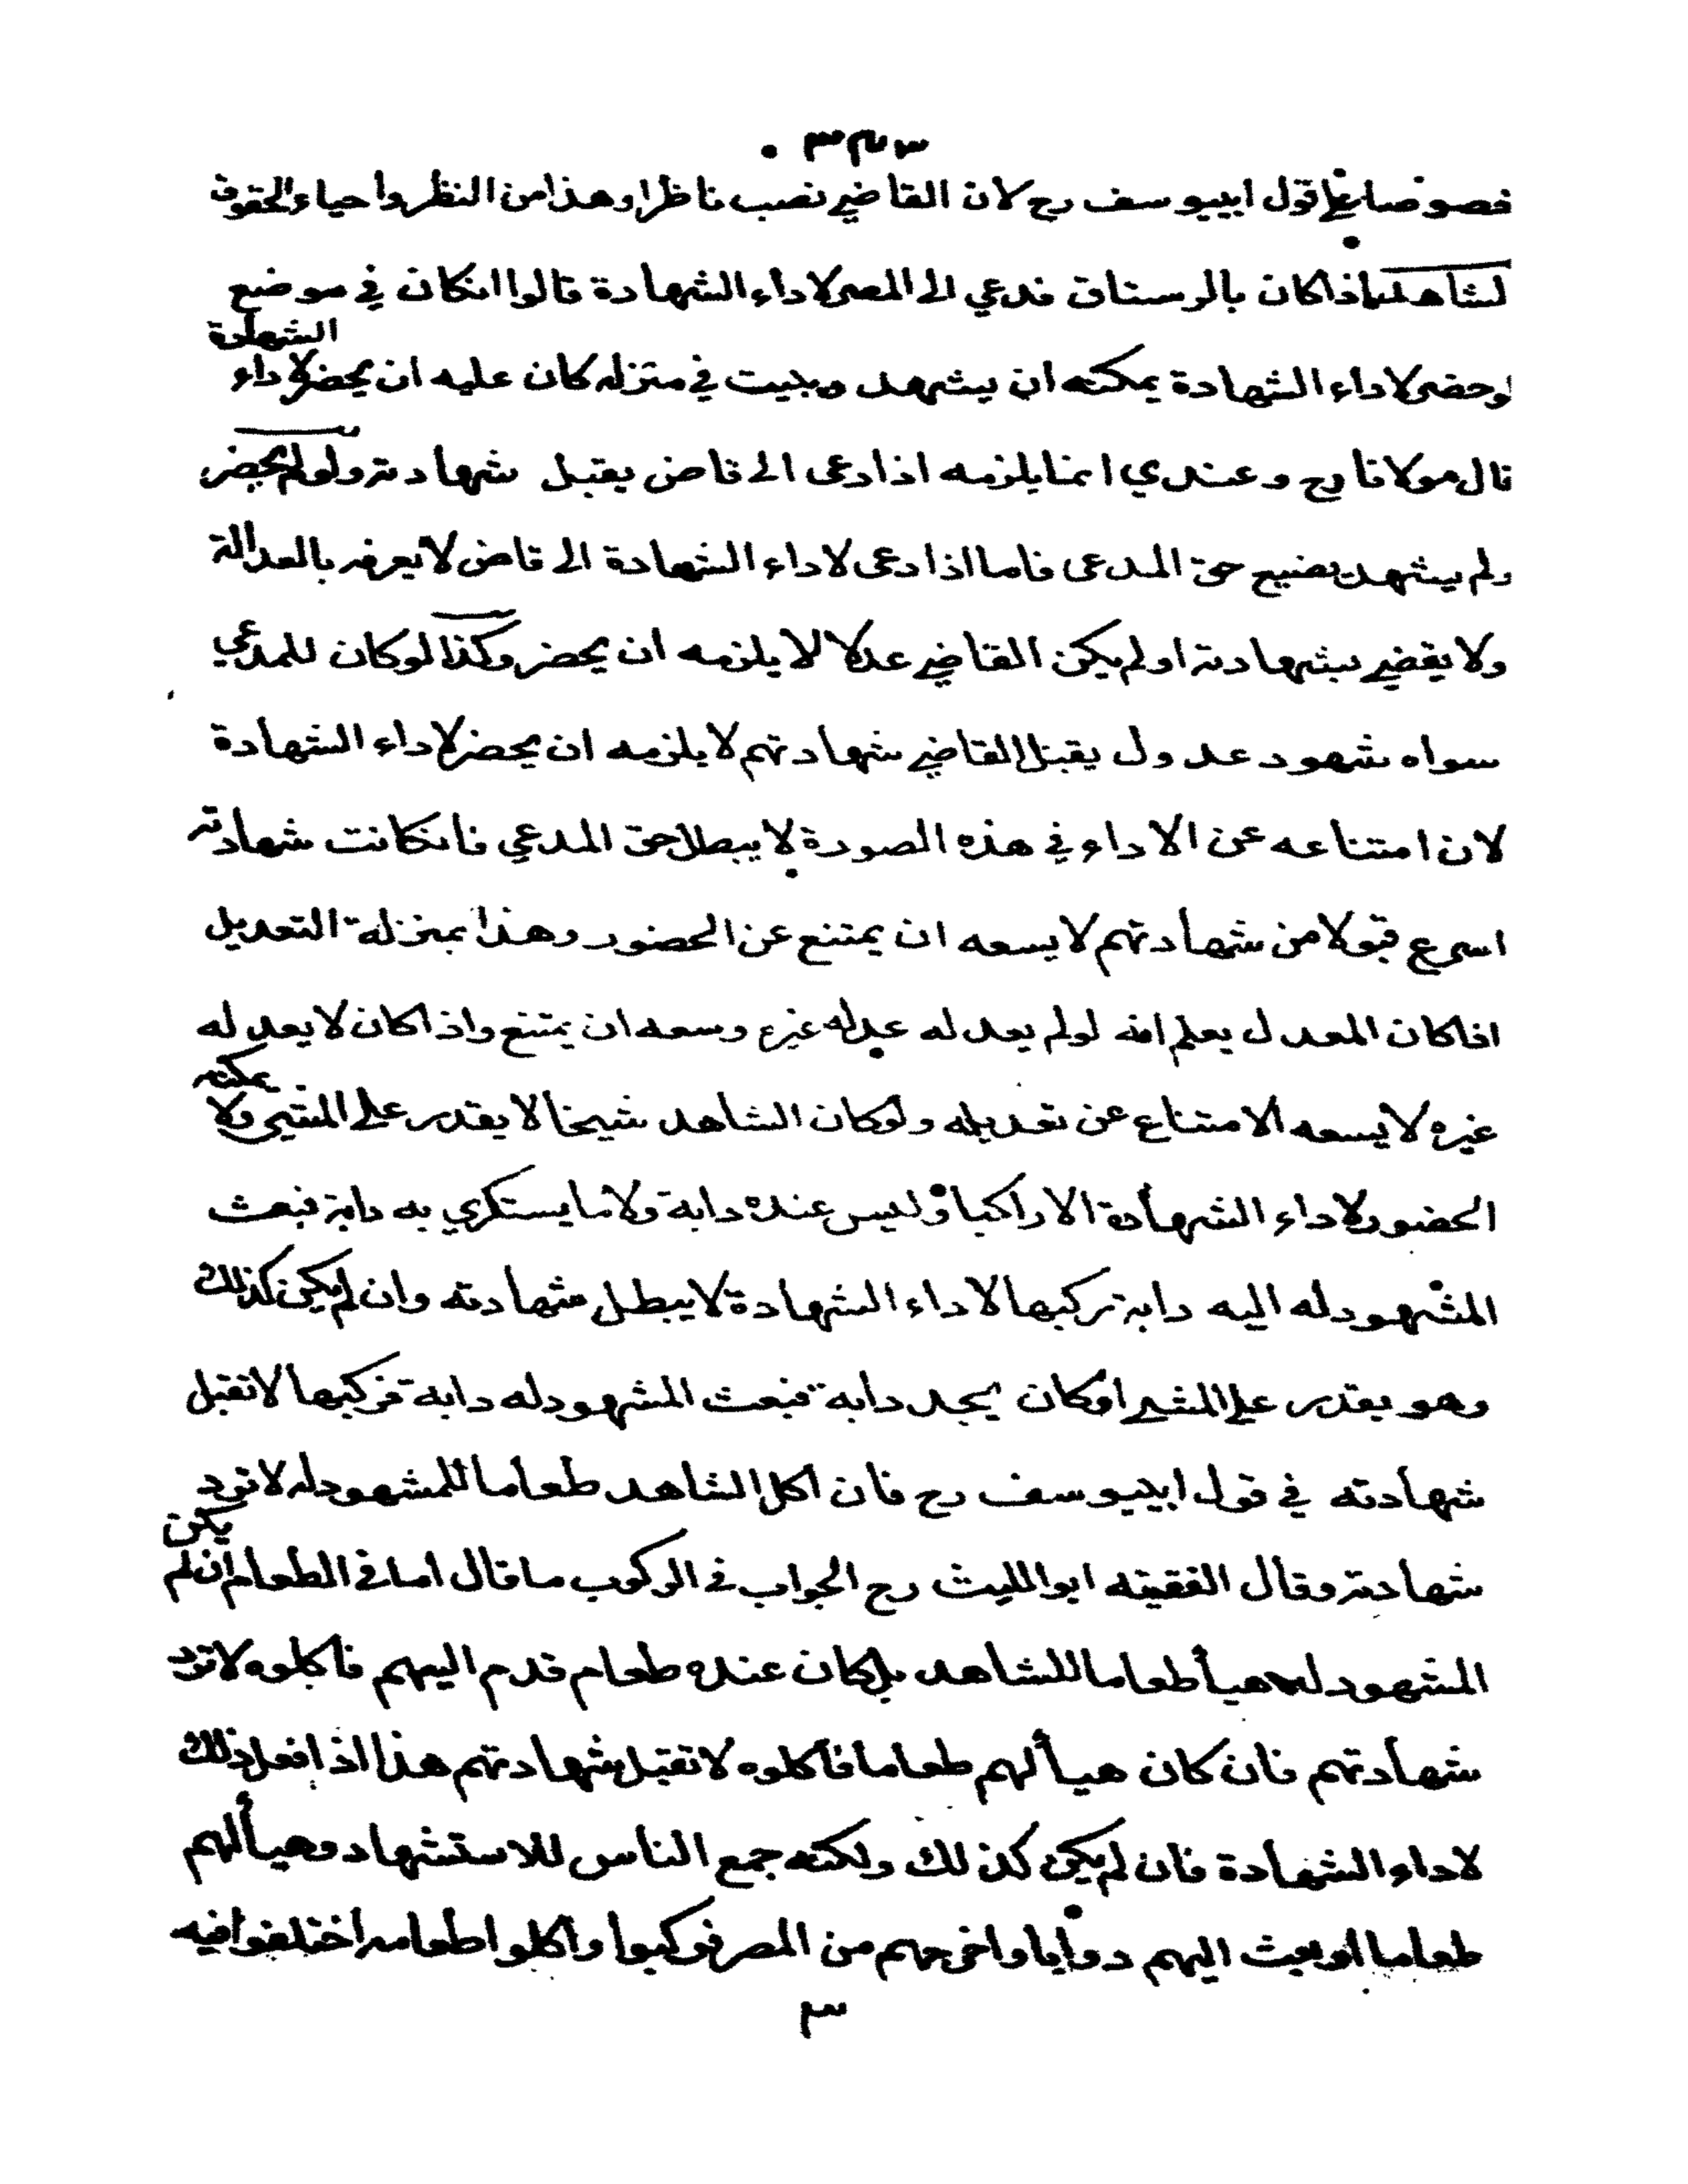 ٣٤٣
خصوصا على قول ابييوسف رح لان القاضي نصب ناظرا وهذا من النظر واحياء الحقوق
الشاهد اذا كان بالرستاق فدعي الى المصر لاداء الشهادة قالوا انكان في موضع
لو حضر لاداء الشهادة يمكنه ان يشهد ويبيت في منزله كان عليه ان يحضر لاداء الشهادة
قال مولانا رح وعندي انما يلزمه اذا دعى الى قاض يقبل شهادته ولو لم يحضر
ولم يشهد يضيع حق المدعى فاما اذا دعى لاداء الشهادة الى قاض لا يعرفه بالعدالة
ولا يقضي بشهادته او لم يكن القاضي عدلا لا يلزمه ان يحضر وكذا لو كان للمدعي
سواه شهود عدول يقبل القاضي شهادتهم لا يلزمه ان يحضر لاداء الشهادة
لان امتناعه عن الاداء في هذه الصورة لا يبطل حق المدعي فانكانت شهادته
اسرع قبولا من شهادتهم لا يسعه ان يمتنع عن الحضور وهذا بمنزلة التعديل
اذا كان المعدل يعلم انه لو لم يعدله عدله غيره وسعه ان يمتنع واذا كان لا يعدله
غيره لا يسعه الامتناع عن تعديله ولو كان الشاهد شيخا لا يقدر على المشي ولا يمكنه
الحضور لاداء الشهادة الا راكبا وليس عنده دابة ولا ما يستكري به دابة فبعث
المشهود له اليه دابة تركبها لاداء الشهادة لا يبطل شهادته وان لم يكن كذلك
وهو يقدر على المشي او كان يجد دابة فبعث المشهود له دابة فركبها لا تقبل
شهادته في قول ابييوسف رح فان اكل الشاهد طعاما للمشهود له لا ترد
شهادته وقال الفقيه ابو الليث رح الجواب في الركوب ما قال اما في الطعام ان لم يكن
المشهود له هيأ طعاما للشاهد بل كان عنده طعام قدم اليهم فاكلوه لا ترد
شهادتهم فان كان هيأ لهم طعاما فأكلوه لا تقبل شهادتهم هذا اذا فعل ذلك
لاداء الشهادة فان لم يكن كذلك ولكنه جمع الناس للاستشهاد وهيأ لهم
طعاما او بعث اليهم دوابا واخرجهم من المصر فركبوا واكلوا طعامه اختلفوا فيه